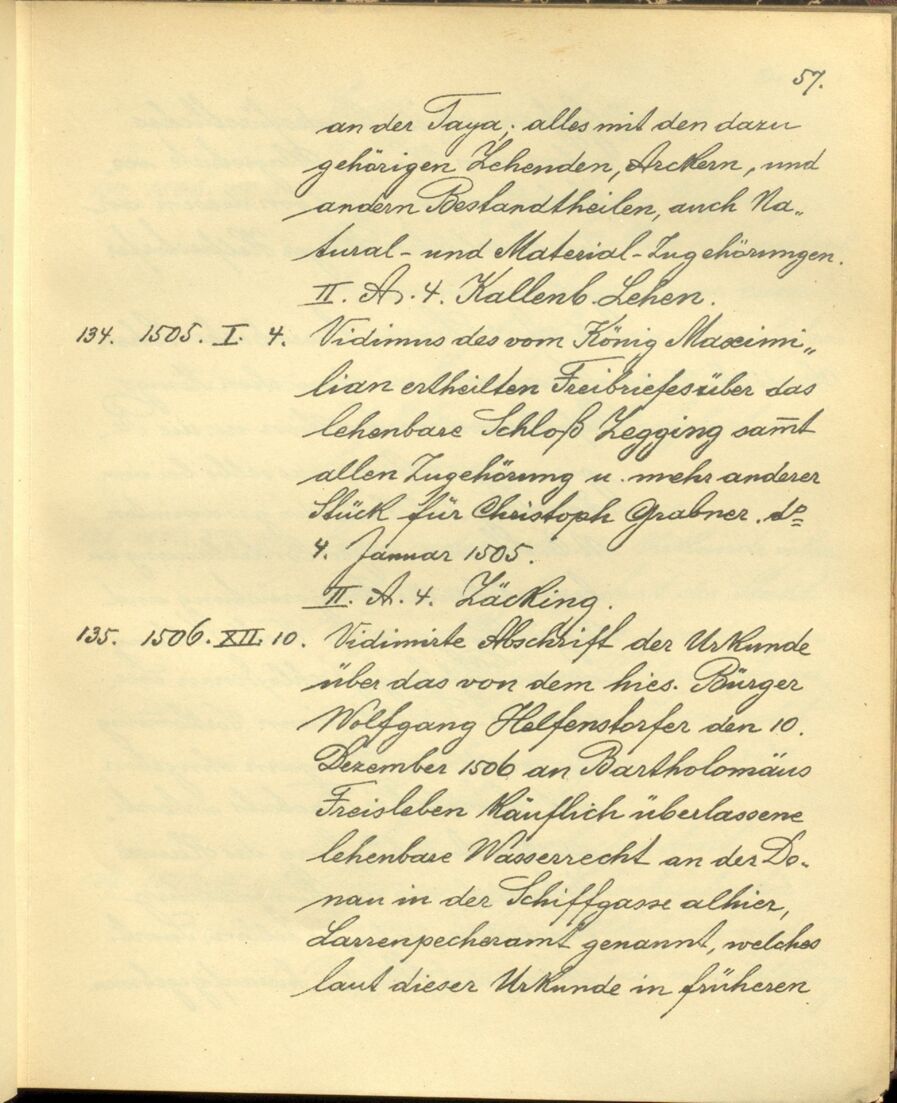 57.
an der Taya; alles mit den dazu
gehörigen Zehenden, Arckern, und
andern Bestandtheilen, auch Na„
tural- und Material-Zugehörungen.
II. A. 4. Kallenb. Lehen.
134. 1505. I. 4. Vidimus des vom König Maximi„
lian ertheilten Freibriefes über das
lehenbare Schloß Zegging sam̅t
allen Zugehörung u. mehr anderer
Stück für Christoph Grabner. do
4. Januar 1505.
II. A. 4. Zäcking.
135. 1506. XII. 10. Vidimirte Abschrift der Urkunde
über das von dem hies. Bürger
Wolfgang Helfenstorfer den 10.
Dezember 1506 an Bartholomäus
Freisleben käuflich überlassene
lehenbare Wasserrecht an der Do-
nau in der Schiffgasse alhier,
Larrenpecheramt genannt, welches
laut dieser Urkunde in früheren